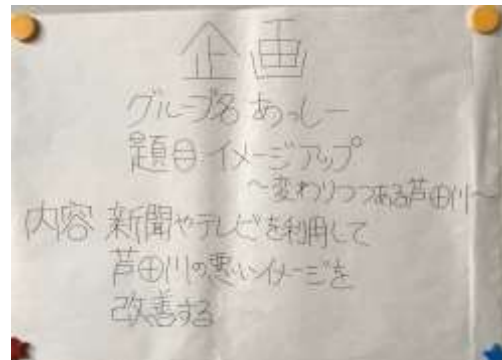 企画
グループ名 あっしー
題目 イメージアップ
～変わりつつある芦田川～
内容 新聞やテレビを利用して
芦田川の悪いイメージを
改善する